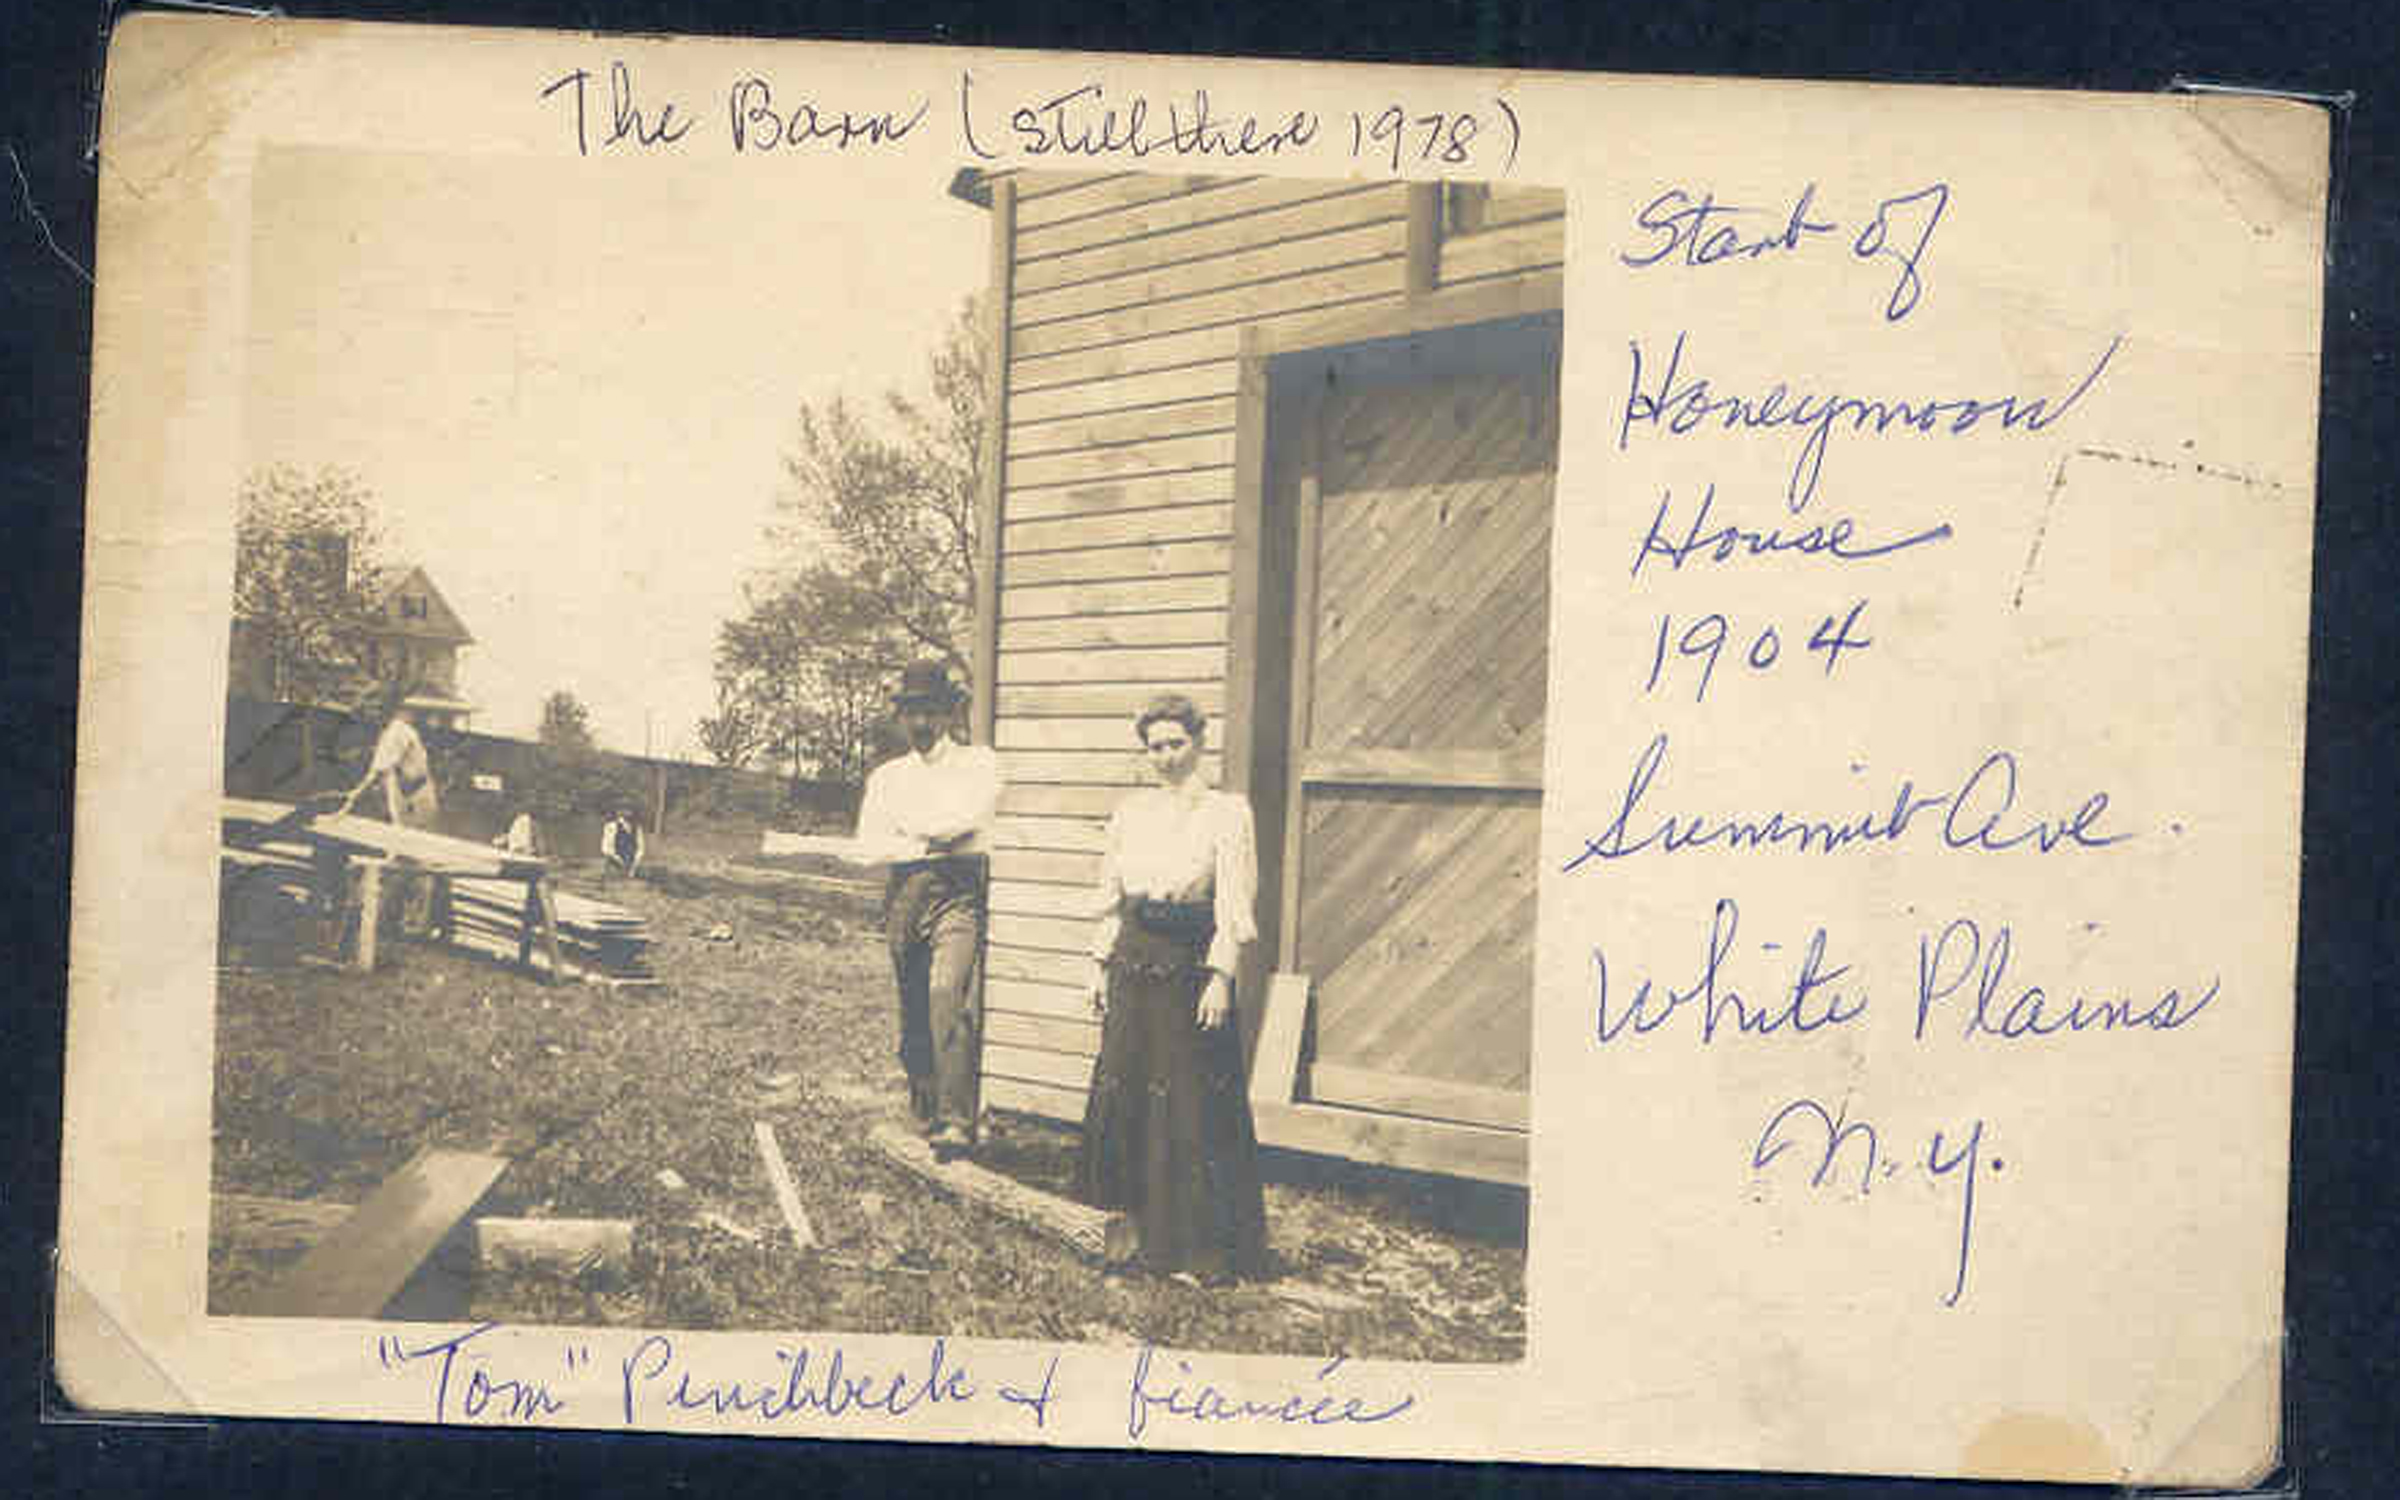 The Barn (still there 1978)
Start of
Honeymoon
House
1904
Summit Ave.
White Plains
N.Y.
"Tom" Pinchbeck & fiancée